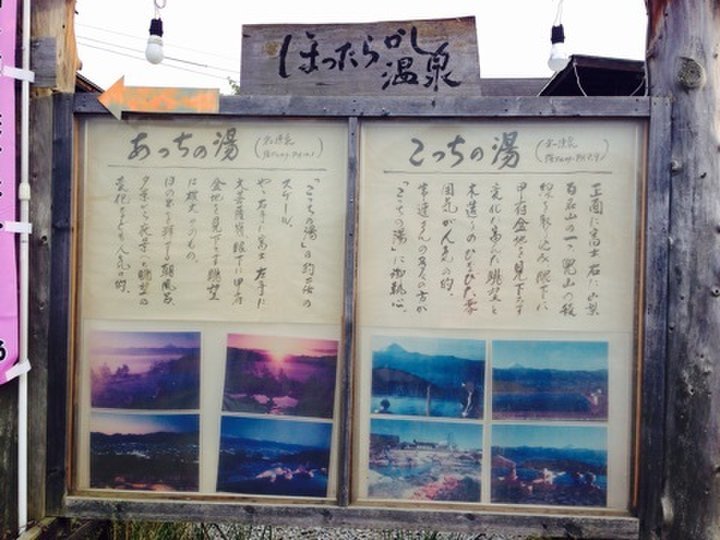 ほったらかし
温泉
あっちの湯
「こっちの湯」の約二倍の
スケール。
やや右手に富士 左手に
大菩薩嶺 眼下に甲府
盆地を見下ろす眺望
は雄大そのもの。
日の出を拝する朝風呂、
夕景から夜景への眺望の
変化なども人気の的。
こっちの湯
正面に富士 右に山梨
百名山の一つ 兜山の稜
線を取り込み 眼下に
甲府盆地を見下ろす
変化に富んだ眺望と
木造りのひなびた雰
囲気が人気の的。
常連さんの多くの方が
「こっちの湯」に御執心。